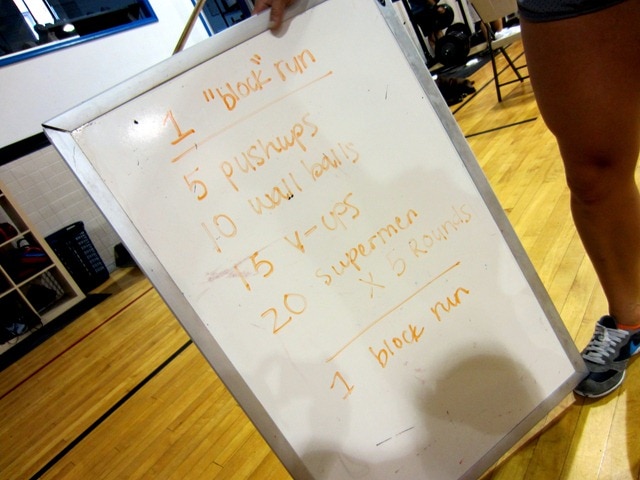 1 "block" run
5 pushups
10 wall balls
15 v-ups
20 supermen
x 5 Rounds
1 block run